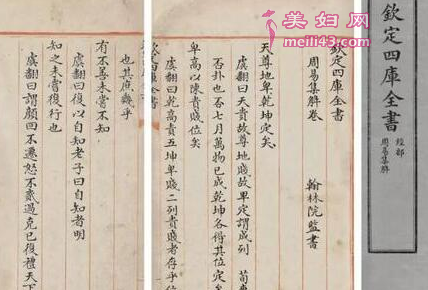 美妇网
meili43.com
欽定四庫全書
經部
周易集解
欽定四庫全書
周易集解卷
翰林院監書
天尊地卑乾坤定矣
虞翻曰天貴故尊地賤故卑定謂成列 荀
否卦也否七月萬物已成乾坤各得其位定
卑高以陳貴賤位矣
虞翻曰乾高貴五坤卑賤二列貴賤者存乎位
也其庶幾乎
有不善未嘗不知
虞翻曰復以自知老子曰自知者明
知之未嘗復行也
虞翻曰謂顏回不遷怒不貳過克己復禮天下